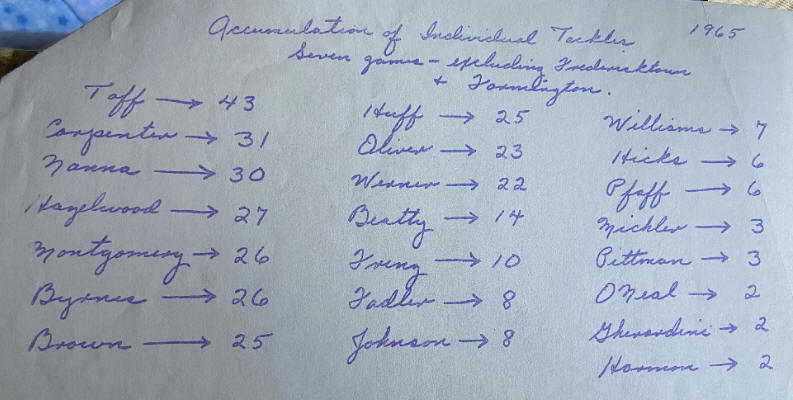 Accumulation of Individual Tackles 1965
Seven games - excluding Fredericktown
+ Farmington.
Taff → 43
Carpenter → 31
Nanna → 30
Hazelwood → 27
Montgomery → 26
Byrnes → 26
Brown → 25
Huff → 25
Oliver → 23
Werner → 22
Beatty → 14
→ 10
→ 8
Johnson → 8
Williams → 7
Hicks → 6
Pfaff → 6
→ 3
Pittman → 3
O'Neal → 2
Gherardini → 2
Harmon → 2